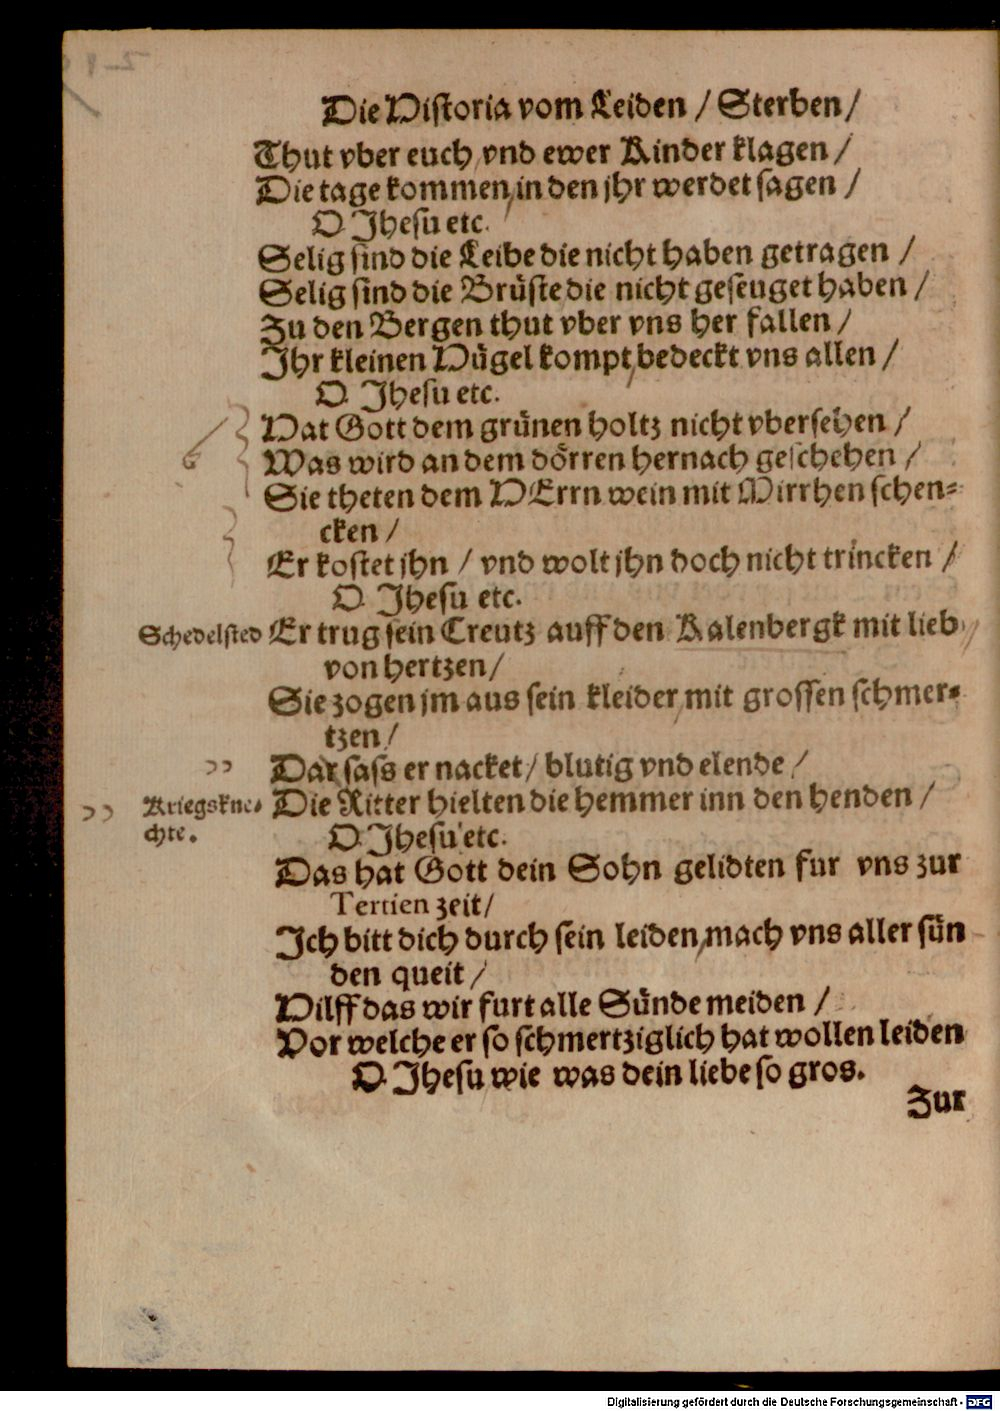 Die Historia vom Leiden / Sterben /
Thut vber euch vnd ewer Kinder klagen /
Die tage kommen, in den jhr werdet sagen /
O Jhesu etc.
Selig sind die Leibe die nicht haben getragen /
Selig sind die Brüste die nicht geseuget haben /
Zu den Bergen thut vber vns her fallen /
Jhr kleinen Hügel kompt, bedeckt vns allen /
O Jhesu etc.
Hat Gott dem grünen holtz nicht vbersehen /
Was wird an dem dörren hernach geschehen /
Sie theten dem HErrn wein mit Mirrhen schen-
cken /
Er kostet jhn / vnd wolt jhn doch nicht trincken /
O Jhesu etc.
Schedelsted Er trug sein Creutz auff den Kalenbergk mit lieb
von hertzen /
Sie zogen jm aus sein kleider, mit grossen schmer-
tzen /
Dar sass er nacket / blutig vnd elende /
Kriegskne- Die Ritter hielten die hemmer inn den henden /
chte. O Jhesu etc.
Das hat Gott dein Sohn gelidten fur vns zur
Tertien zeit /
Jch bitt dich durch sein leiden, mach vns aller sün
den queit /
Hilff das wir furt alle Sünde meiden /
Vor welche er so schmertziglich hat wollen leiden
O Jhesu wie was dein liebe so gros.
Zur
Digitalisierung gefördert durch die Deutsche Forschungsgemeinschaft - DFG